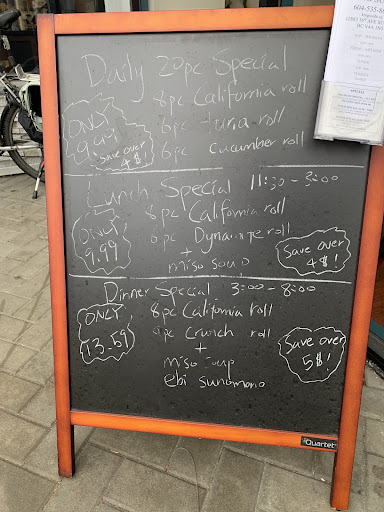 Daily 20pc Special
8pc California roll
6pc tuna roll
6pc cucumber roll
ONLY
9.99
save over
4$!
Lunch Special 11:30 - 3:00
8pc California roll
Dynamite roll
+
miso soup
ONLY
9.99
Save over
4$!
Dinner Special 3:00 - 8:00
8pc California roll
Crunch roll
+
miso soup
ebi sunomono
ONLY
13.59
Save over
5$!
Quartet
604-535-8